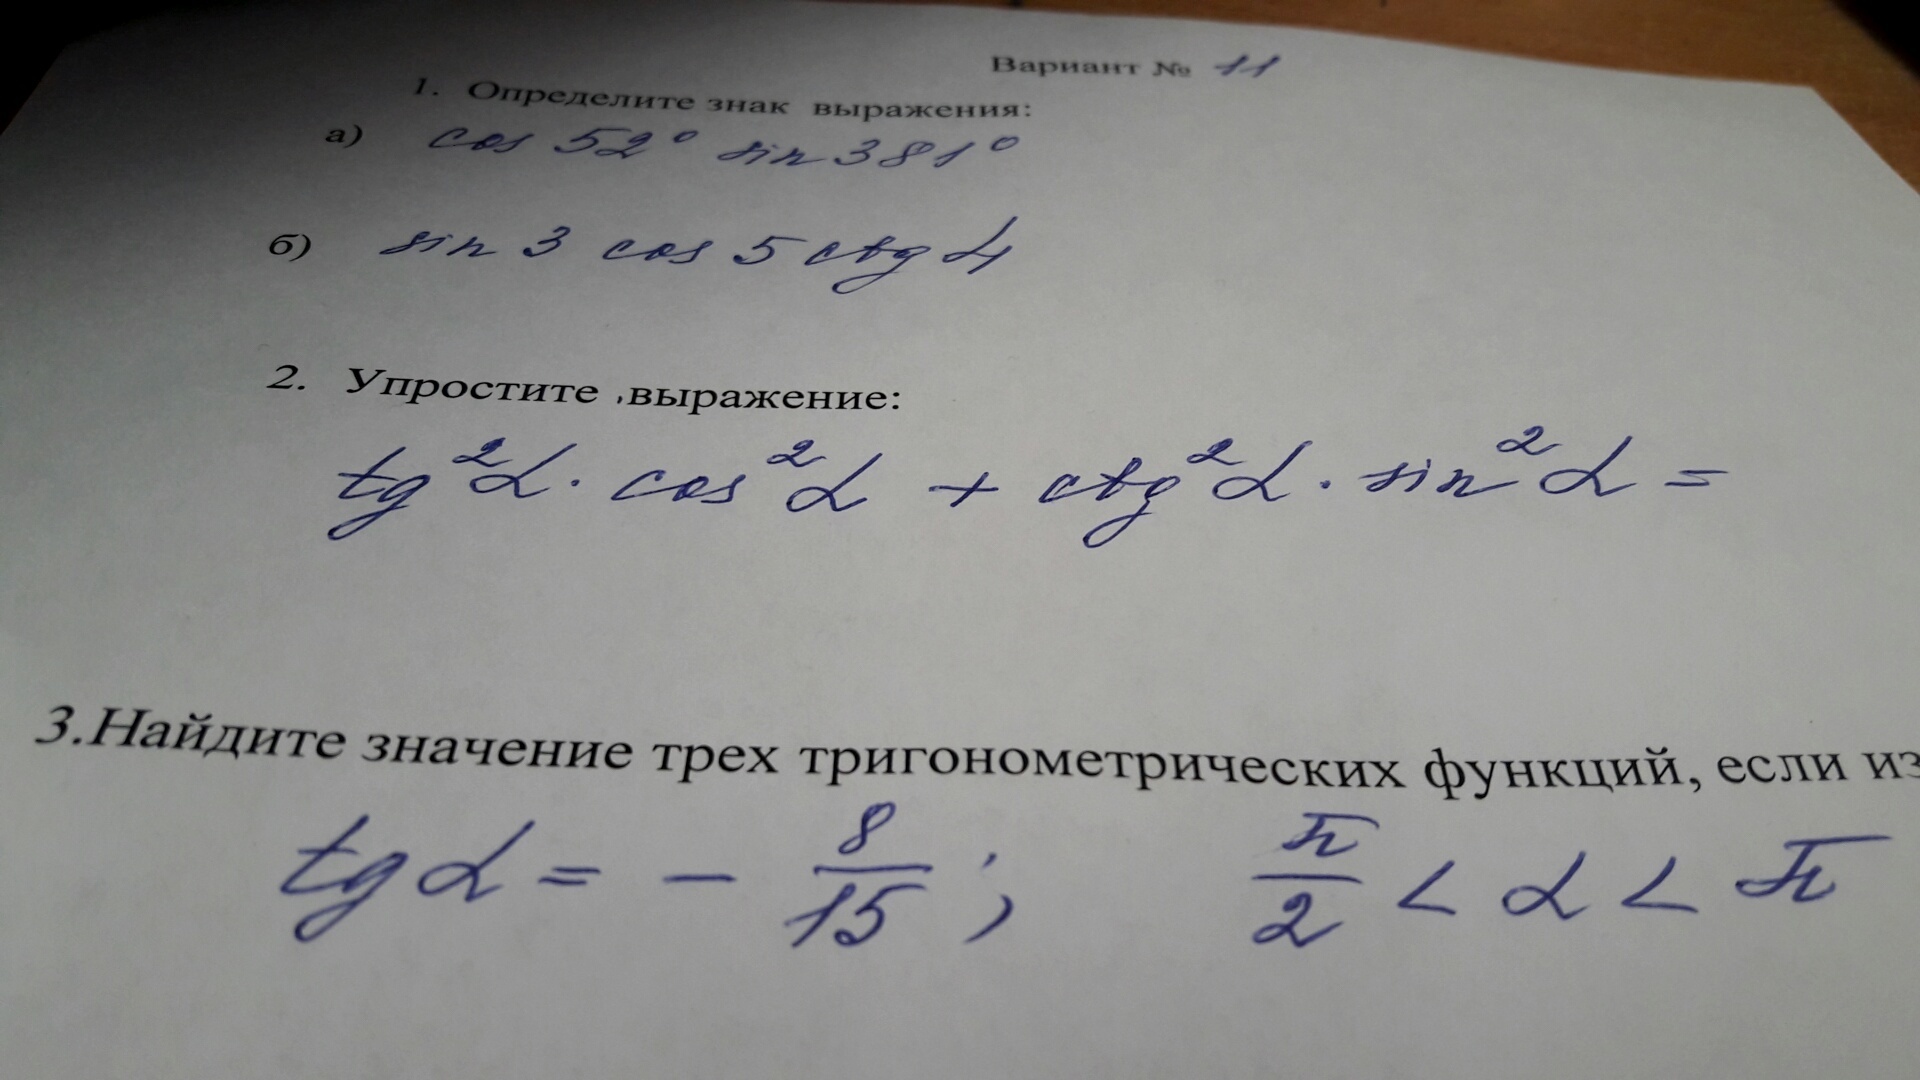 Вариант № 11
1. Определите знак выражения:
а) cos 52° sin 381°
б) sin 3 cos 5 ctg 4
2. Упростите выражение:
tg²α · cos²α + ctg²α · sin²α =
3.Найдите значение трех тригонометрических функций, если из
tg α = - 8/15 ; π/2 < α < π